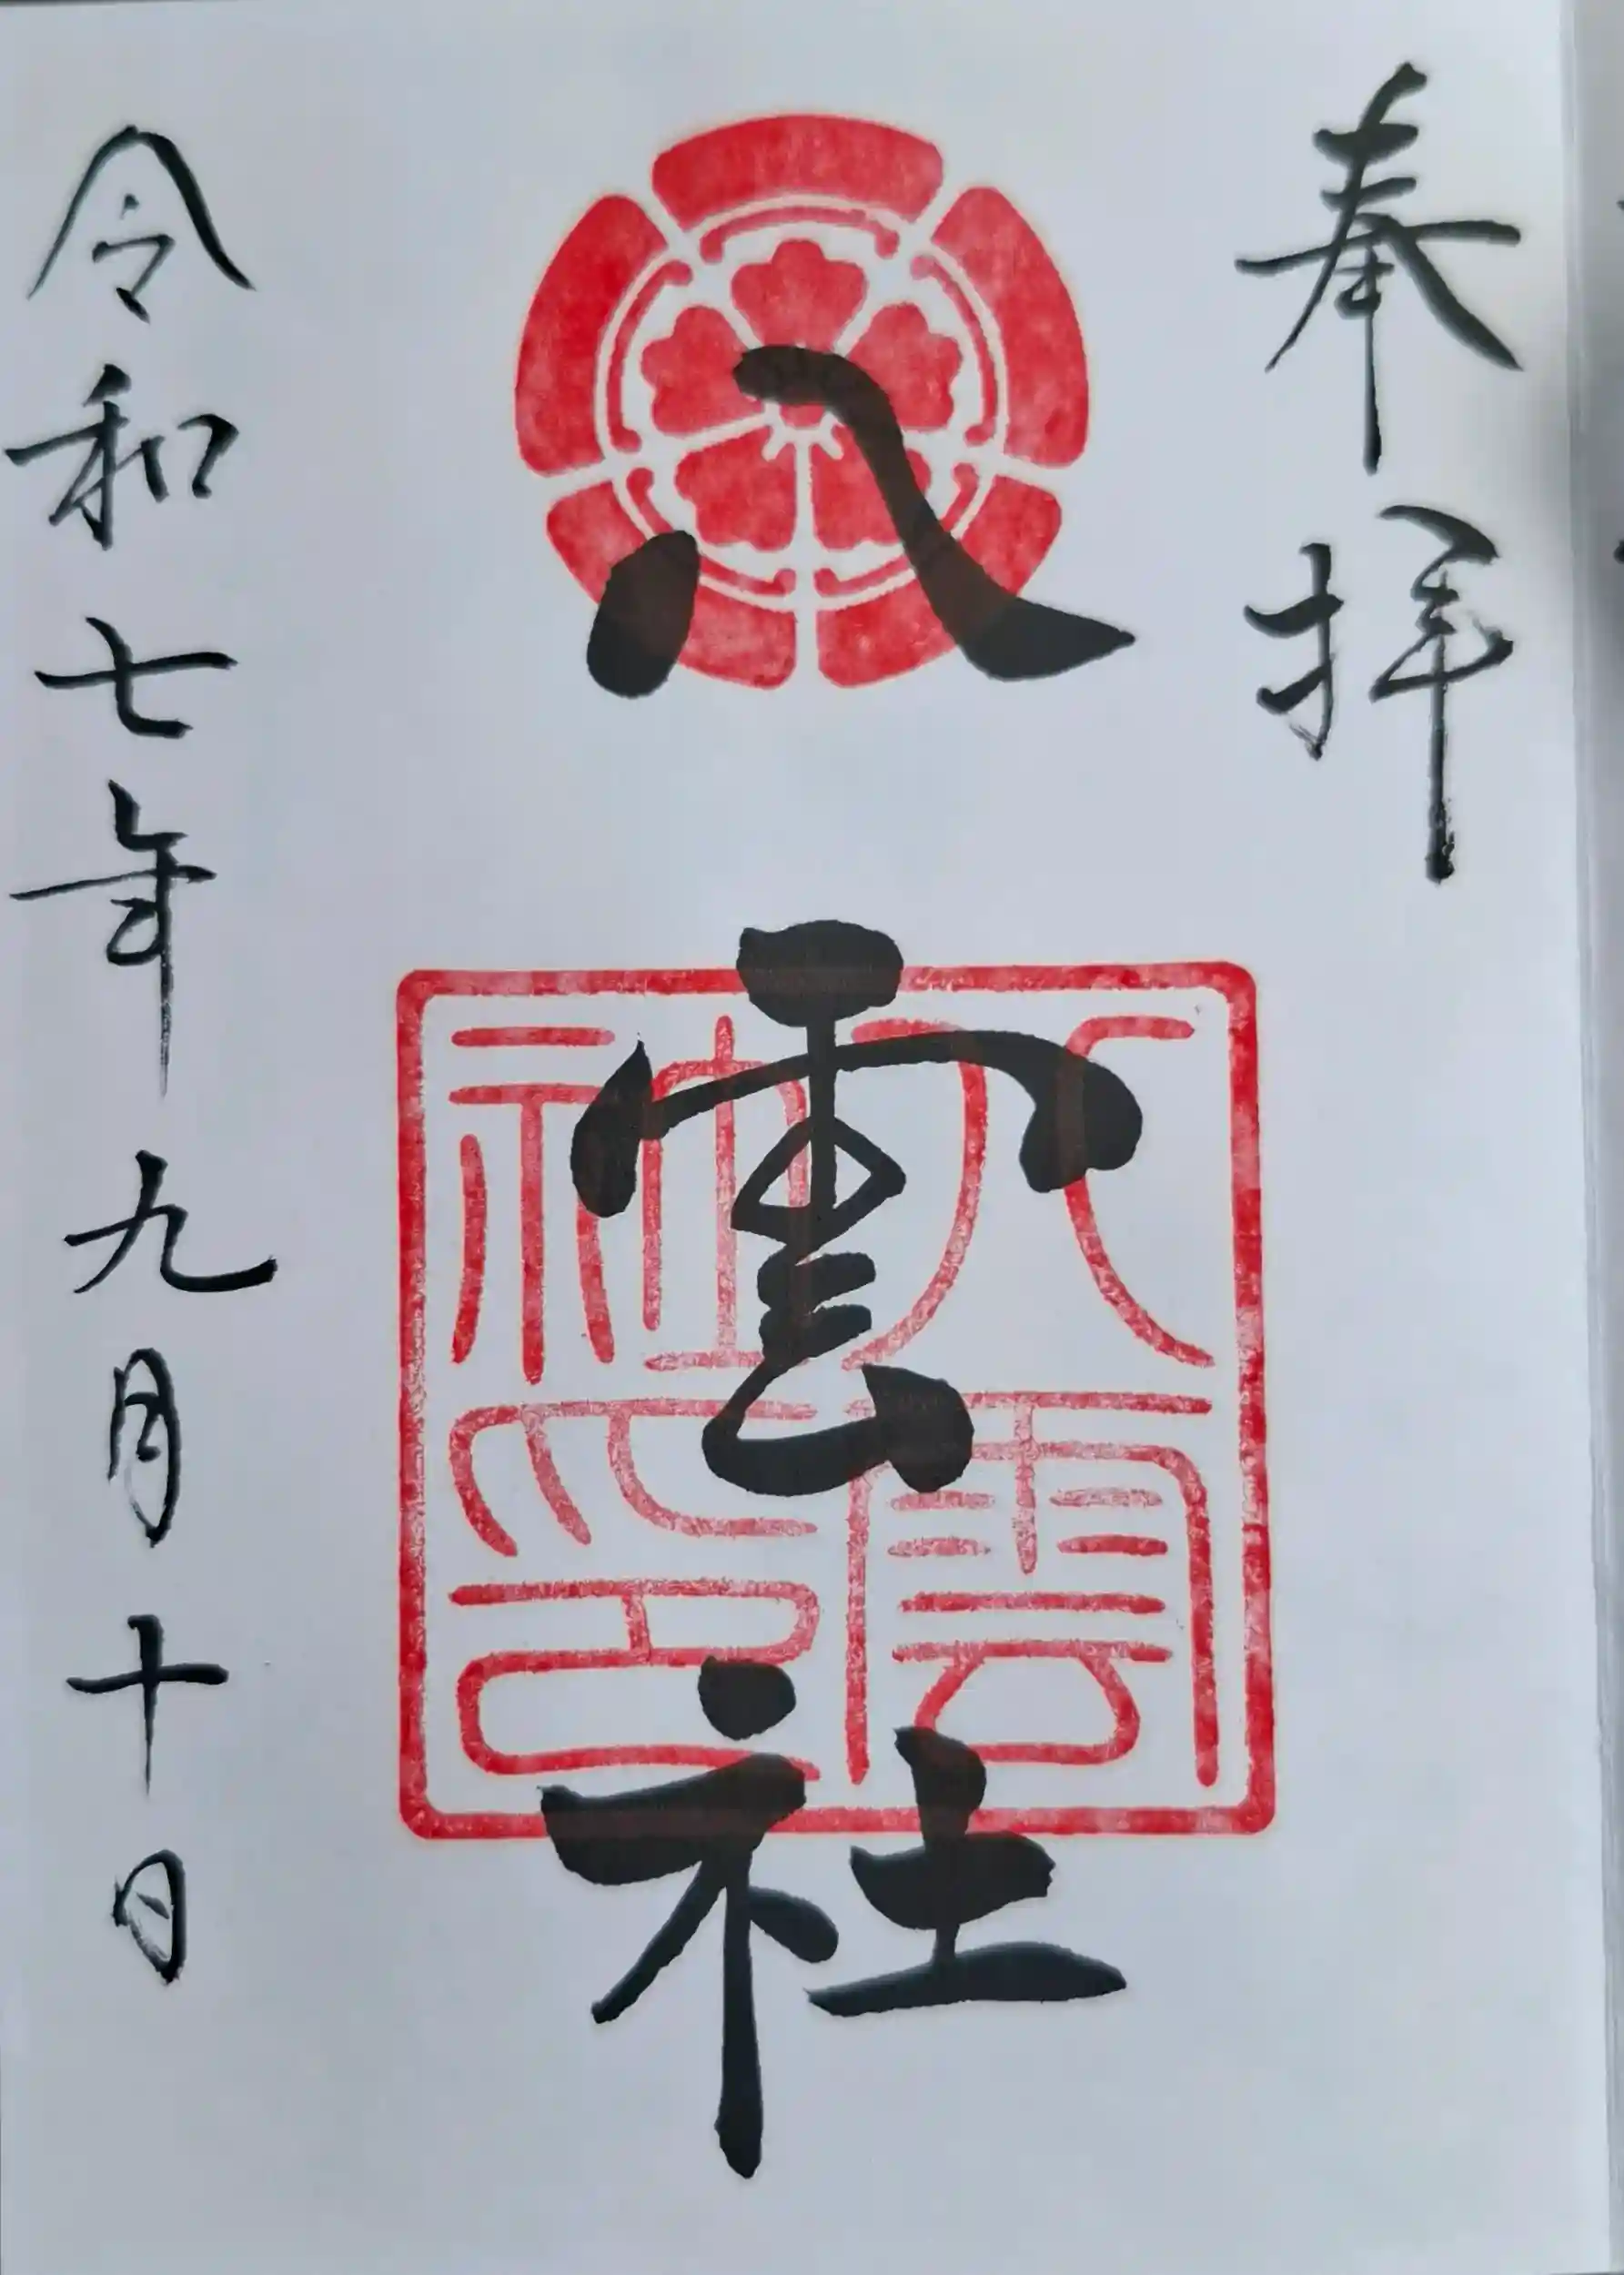 奉拝
八雲社
八雲社印
令和七年九月十日